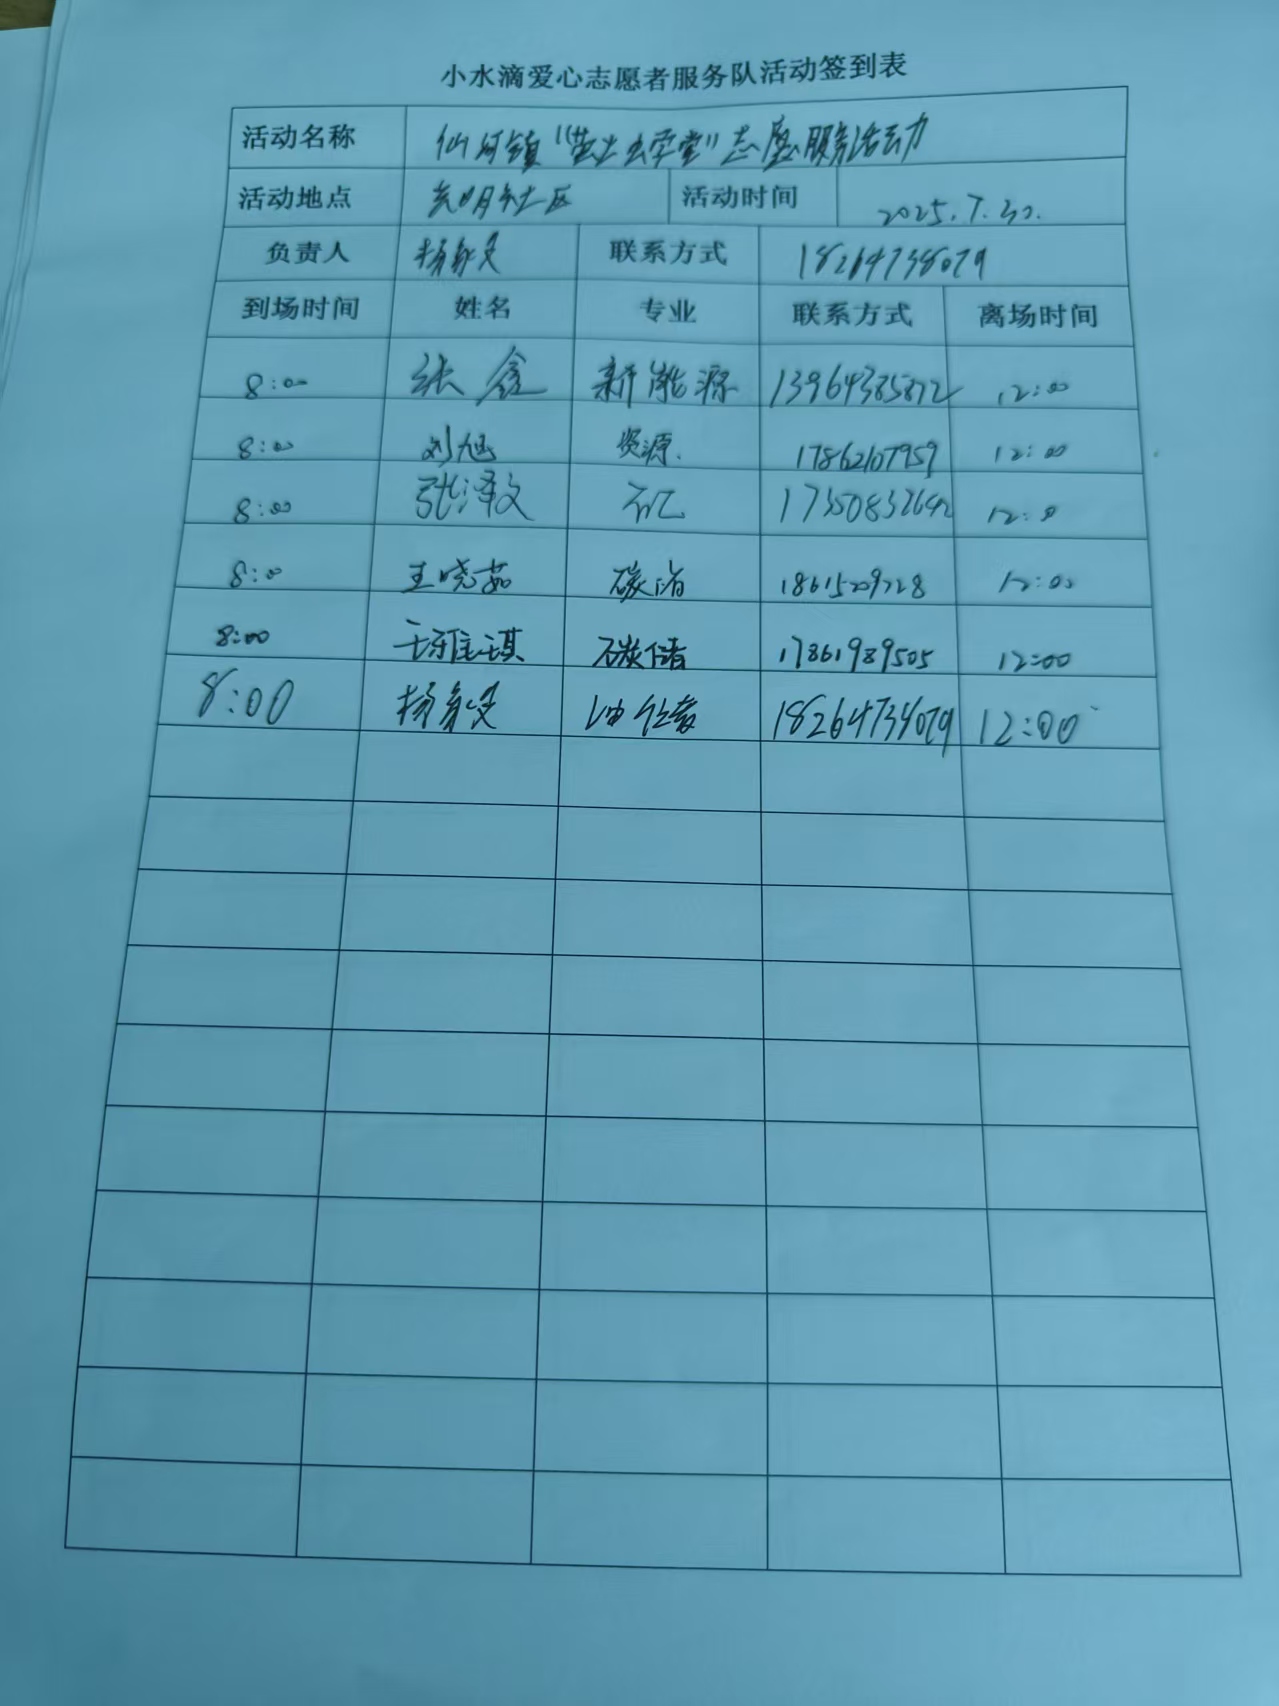 小水滴爱心志愿者服务队活动签到表
活动名称 仙河镇“萤火虫学堂”志愿服务活动
活动地点 光明社区 活动时间 2025.7.30.
负责人 杨 联系方式 18264738079
到场时间 姓名 专业 联系方式 离场时间
8:00 张鑫 新能源 13964385872 12:00
8:00 刘旭 资源 17862107959 12:00
8:00 张泽文 17350832692 12:0
8:00 王晓茹 碳储 12:00
8:00 王雅琪 碳储 17861989505 12:00
8:00 杨 油储 12:00